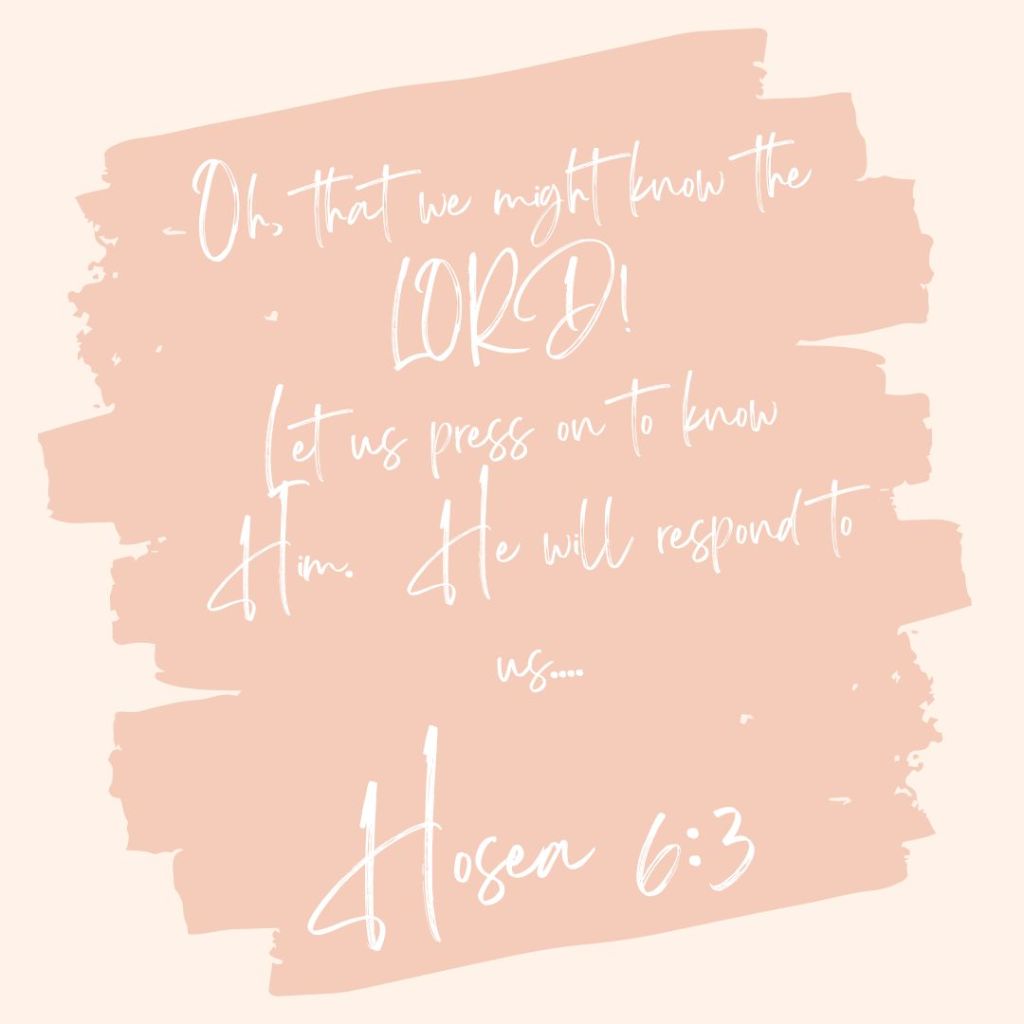 Oh, that we might know the
LORD!
Let us press on to know
Him. He will respond to
us....
Hosea 6:3